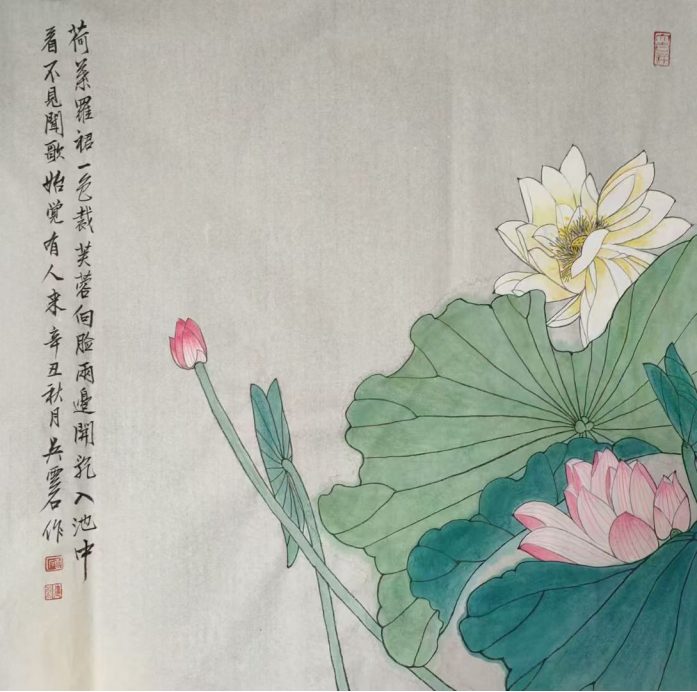 荷葉羅裙一色裁芙蓉向臉兩邊開乱入池中
看不見聞歌始覺有人来辛丑秋月吴雲石作